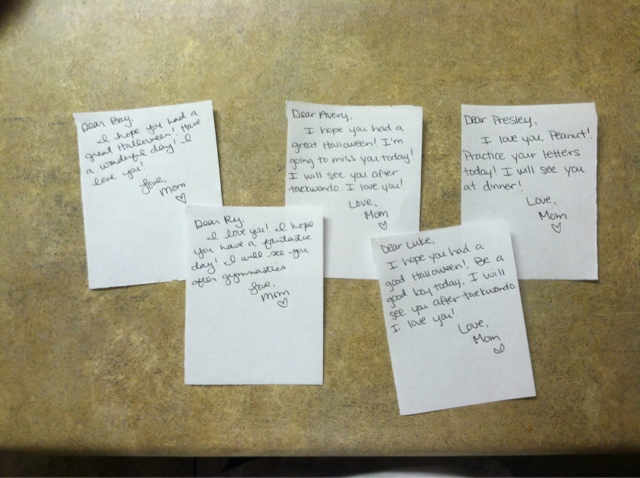 Dear Bay,
I hope you had a
great Halloween! Have
a wonderful day! I
love you!
Love,
Mom
Dear Avery,
I hope you had a
great Halloween! I'm
going to miss you today!
I will see you after
taekwondo. I love you!
Love,
Mom
Dear Presley,
I love you, Peanut!
Practice your letters
today! I will see you
at dinner!
Love,
Mom
Dear Ry,
I love you! I hope
you have a fantastic
day! I will see you
after gymnastics
Love,
Mom
Dear Luke,
I hope you had a
good Halloween! Be a
good boy today. I will
see you after taekwondo
I love you!
Love,
Mom